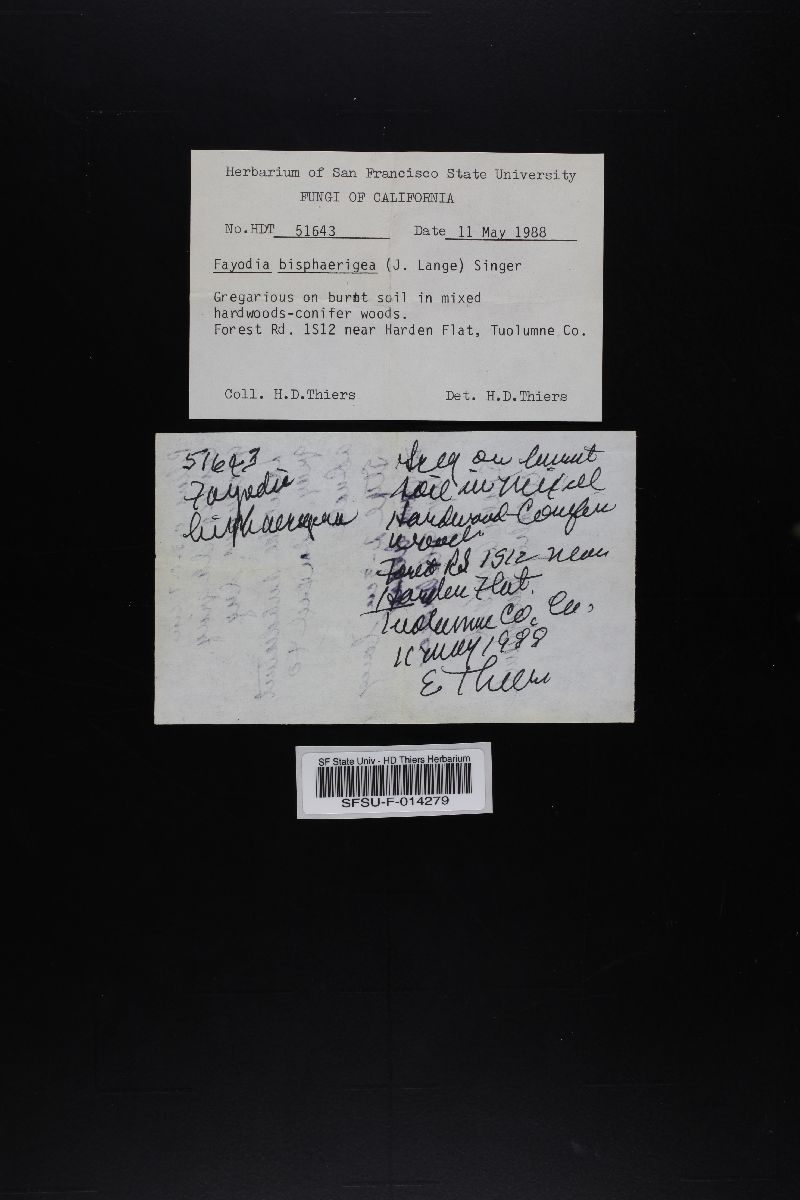 Herbarium of San Francisco State University
FUNGI OF CALIFORNIA
No.HDT 51643 Date 11 May 1988
Fayodia bisphaerigea (J. Lange) Singer
Gregarious on burnt soil in mixed
hardwoods-conifer woods.
Forest Rd. 1S12 near Harden Flat, Tuolumne Co.
Coll. H.D.Thiers Det. H.D.Thiers
51643
Fayodia
Greg on burnt
soil in mixed
Hardwood-Conifer
woods
Forest Rd 1S12 near
Harden Flat.
Tuolumne Co. Ca.
11 May 1988
E Thiers
SF State Univ - HD Thiers Herbarium
SFSU-F-014279